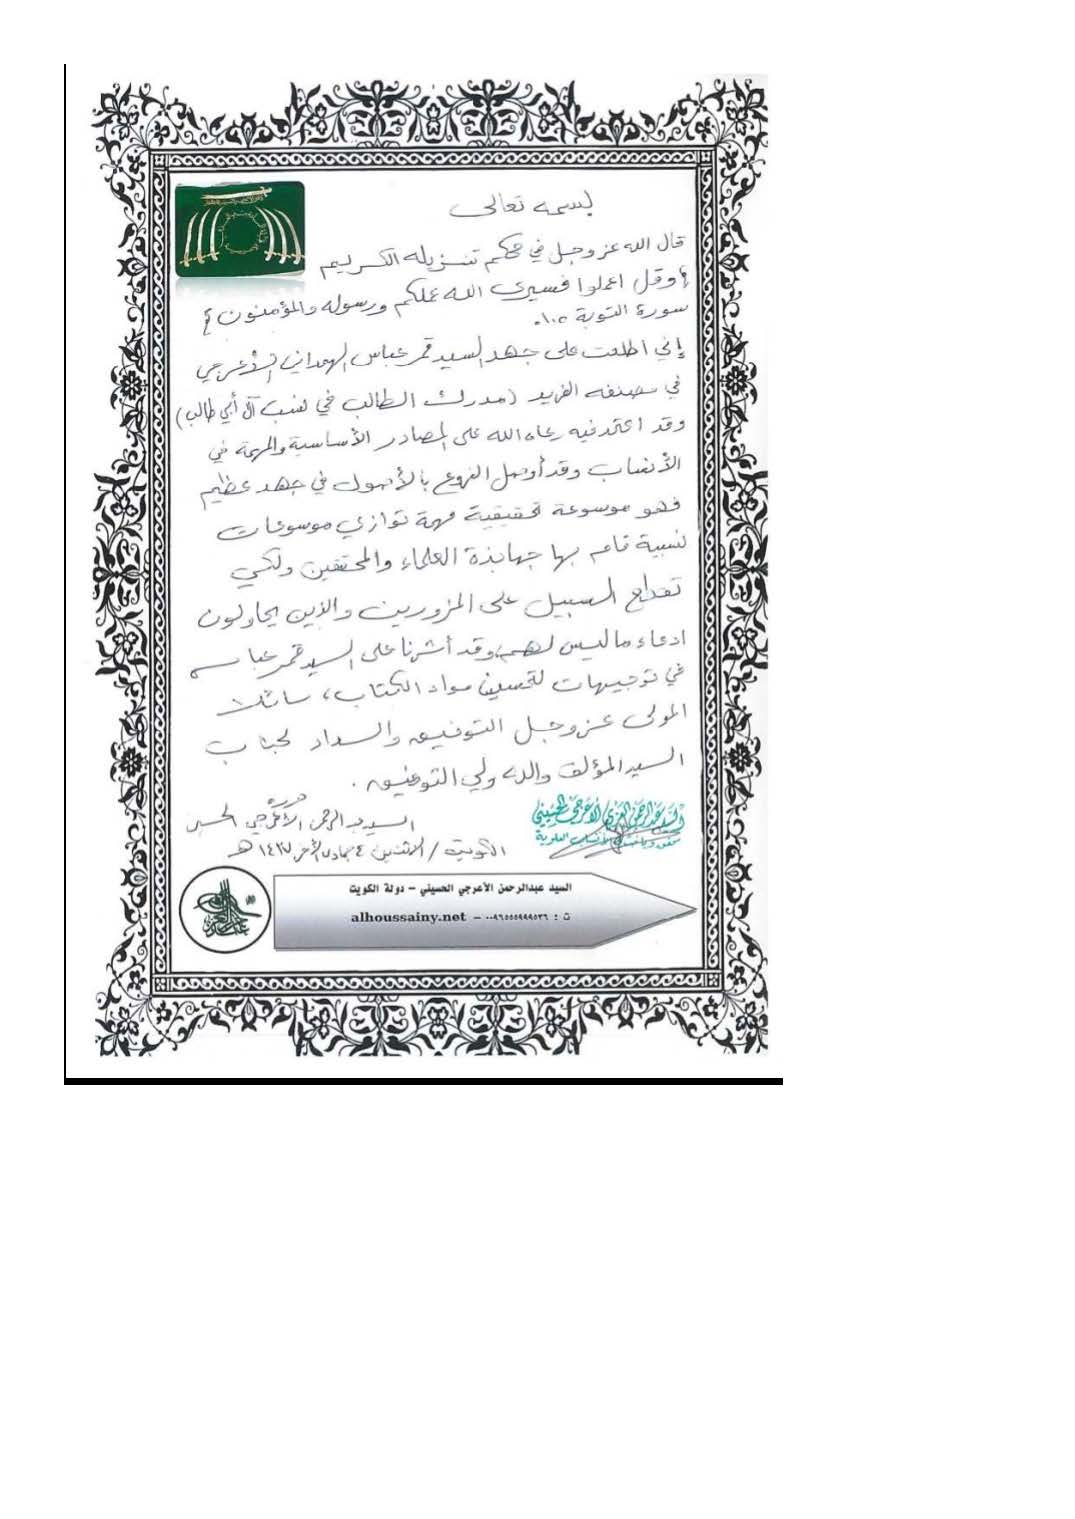 بسمه تعالى
قال الله عز وجل في محكم تنزيله الكريم
{وقل اعملوا فسيرى الله عملكم ورسوله والمؤمنون}
سورة التوبة ١٠٥.
إني اطلعت على جهد السيد قمر عباس الهمداني الأعرجي
في مصنفه الفريد (مدرك الطالب في نسب آل أبي طالب)
وقد اعتمد فيه رعاه الله على المصادر الأساسية والمهمة في
الأنساب وقد أوصل الفروع بالأصول في جهد عظيم
فهو موسوعة تحقيقية مهمة توازي موسوعات
نسبية قام بها جهابذة العلماء والمحققين ولكي
تقطع السبيل على المزورين والذين يحاولون
ادعاء ما ليس لهم، وقد أشرنا على السيد قمر عباس
في توجيهات لتحسين مواد الكتاب، سائلا
المولى عز وجل التوفيق والسداد لجناب
السيد المؤلف والله ولي التوفيق.
السيد عبدالرحمن الأعرجي الحسيني
الكويت / الاثنين ٤ جمادى الآخر ١٤٣٧ هـ
السيد عبدالرحمن العزي الأعرجي الحسيني
الأنساب العلوية
السيد عبدالرحمن الأعرجي الحسيني – دولة الكويت
ت : ٠٠٩٦٥٥٥٩٩٩٥٣٦ – alhoussainy.net